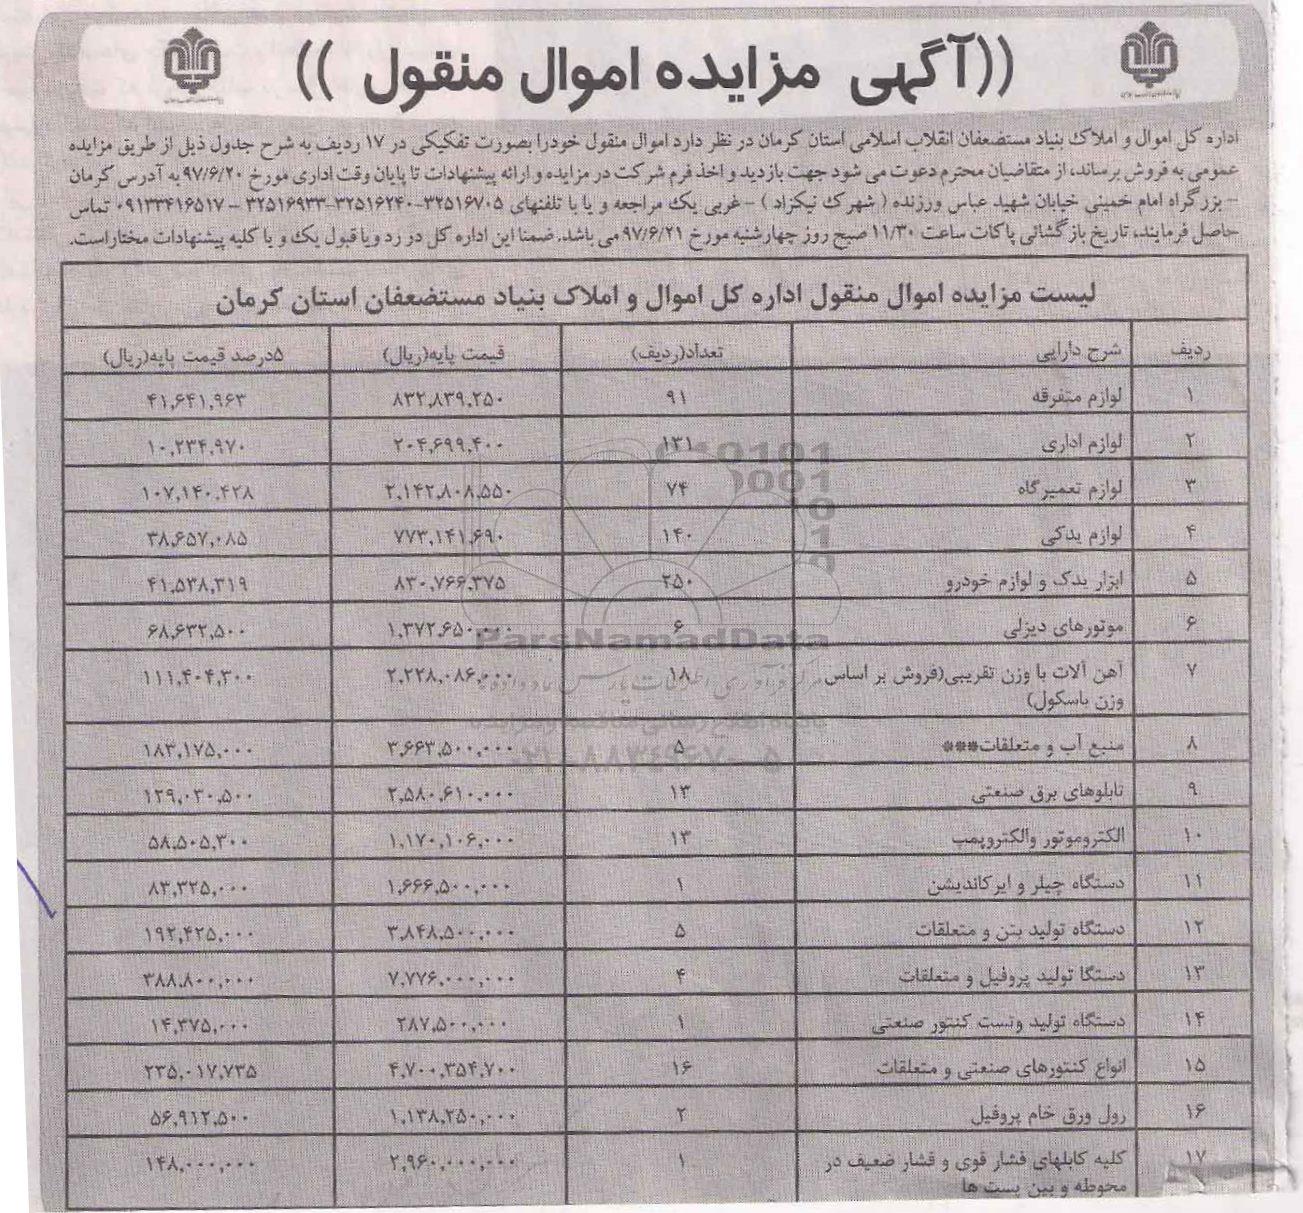 ((آگهی مزایده اموال منقول ))
اداره کل اموال و املاک بنیاد مستضعفان انقلاب اسلامی استان کرمان در نظر دارد اموال منقول خودرا بصورت تفکیکی در ۱۷ ردیف به شرح جدول ذیل از طریق مزایده
عمومی به فروش برساند، از متقاضیان محترم دعوت می شود جهت بازدید و اخذ فرم شرکت در مزایده و ارائه پیشنهادات تا پایان وقت اداری مورخ ۹۷/۶/۲۰ به آدرس کرمان
- بزرگراه امام خمینی خیابان شهید عباس ورزنده ( شهرک نیکزاد ) - غربی یک مراجعه و یا با تلفنهای ۳۲۵۱۶۷۰۵-۳۲۵۱۶۲۴۰-۳۲۵۱۶۹۳۳ - ۰۹۱۳۳۴۱۶۵۱۷ تماس
حاصل فرمایند، تاریخ بازگشائی پاکات ساعت ۱۱/۳۰ صبح روز چهارشنبه مورخ ۹۷/۶/۲۱ می باشد. ضمنا این اداره کل در رد ویا قبول یک و یا کلیه پیشنهادات مختاراست.
لیست مزایده اموال منقول اداره کل اموال و املاک بنیاد مستضعفان استان کرمان
ردیف شرح دارایی تعداد(ردیف) قیمت پایه(ریال) ۵درصد قیمت پایه(ریال)
۱ لوازم متفرقه ۹۱ ۸۳۲,۸۳۹,۲۵۰ ۴۱,۶۴۱,۹۶۳
۲ لوازم اداری ۱۳۱ ۲۰۴,۶۹۹,۴۰۰ ۱۰,۲۳۴,۹۷۰
۳ لوازم تعمیرگاه ۷۴ ۲,۱۴۲,۸۰۸,۵۵۰ ۱۰۷,۱۴۰,۴۲۸
۴ لوازم یدکی ۱۴۰ ۷۷۳,۱۴۱,۶۹۰ ۳۸,۶۵۷,۰۸۵
۵ ابزار یدک و لوازم خودرو ۲۵۰ ۸۳۰,۷۶۶,۳۷۵ ۴۱,۵۳۸,۳۱۹
۶ موتورهای دیزلی ۶ ۱,۳۷۲,۶۵۰,۰۰۰ ۶۸,۶۳۲,۵۰۰
۷ آهن آلات با وزن تقریبی(فروش بر اساس ۱۸ ۲,۲۲۸,۰۸۶,۰۰۰ ۱۱۱,۴۰۴,۳۰۰
وزن باسکول)
۸ منبع آب و متعلقات*** ۵ ۳,۶۶۳,۵۰۰,۰۰۰ ۱۸۳,۱۷۵,۰۰۰
۹ تابلوهای برق صنعتی ۱۳ ۲,۵۸۰,۶۱۰,۰۰۰ ۱۲۹,۰۳۰,۵۰۰
۱۰ الکتروموتور والکتروپمپ ۱۳ ۱,۱۷۰,۱۰۶,۰۰۰ ۵۸,۵۰۵,۳۰۰
۱۱ دستگاه چیلر و ایرکاندیشن ۱ ۱,۶۶۶,۵۰۰,۰۰۰ ۸۳,۳۲۵,۰۰۰
۱۲ دستگاه تولید بتن و متعلقات ۵ ۳,۸۴۸,۵۰۰,۰۰۰ ۱۹۲,۴۲۵,۰۰۰
۱۳ دستگا تولید پروفیل و متعلقات ۴ ۷,۷۷۶,۰۰۰,۰۰۰ ۳۸۸,۸۰۰,۰۰۰
۱۴ دستگاه تولید وتست کنتور صنعتی ۱ ۲۸۷,۵۰۰,۰۰۰ ۱۴,۳۷۵,۰۰۰
۱۵ انواع کنتورهای صنعتی و متعلقات ۱۶ ۴,۷۰۰,۳۵۴,۷۰۰ ۲۳۵,۰۱۷,۷۳۵
۱۶ رول ورق خام پروفیل ۲ ۱,۱۳۸,۲۵۰,۰۰۰ ۵۶,۹۱۲,۵۰۰
۱۷ کلیه کابلهای فشار قوی و فشار ضعیف در ۱ ۲,۹۶۰,۰۰۰,۰۰۰ ۱۴۸,۰۰۰,۰۰۰
محوطه و بین پست ها
ParsNamadData
۰۲۱-۸۸۳۴۹۶۷۰-۵